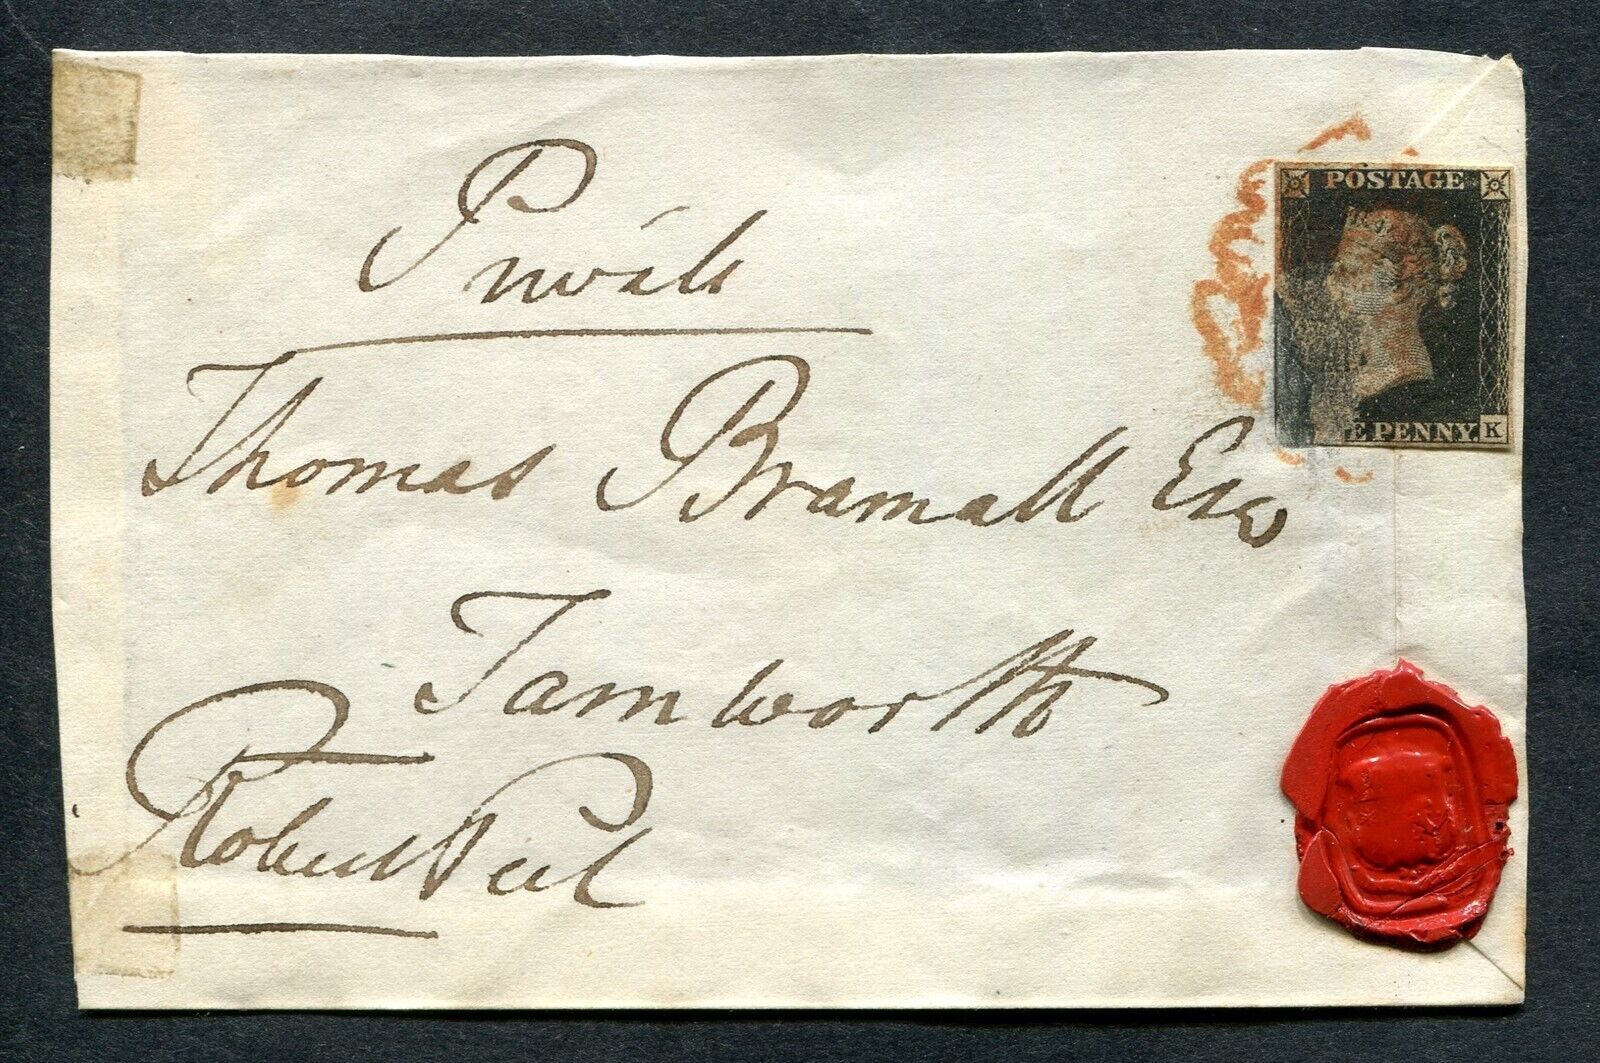 POSTAGE
Private
Thomas Bramall Esq
E PENNY. K
Tamworth
Robert Peel